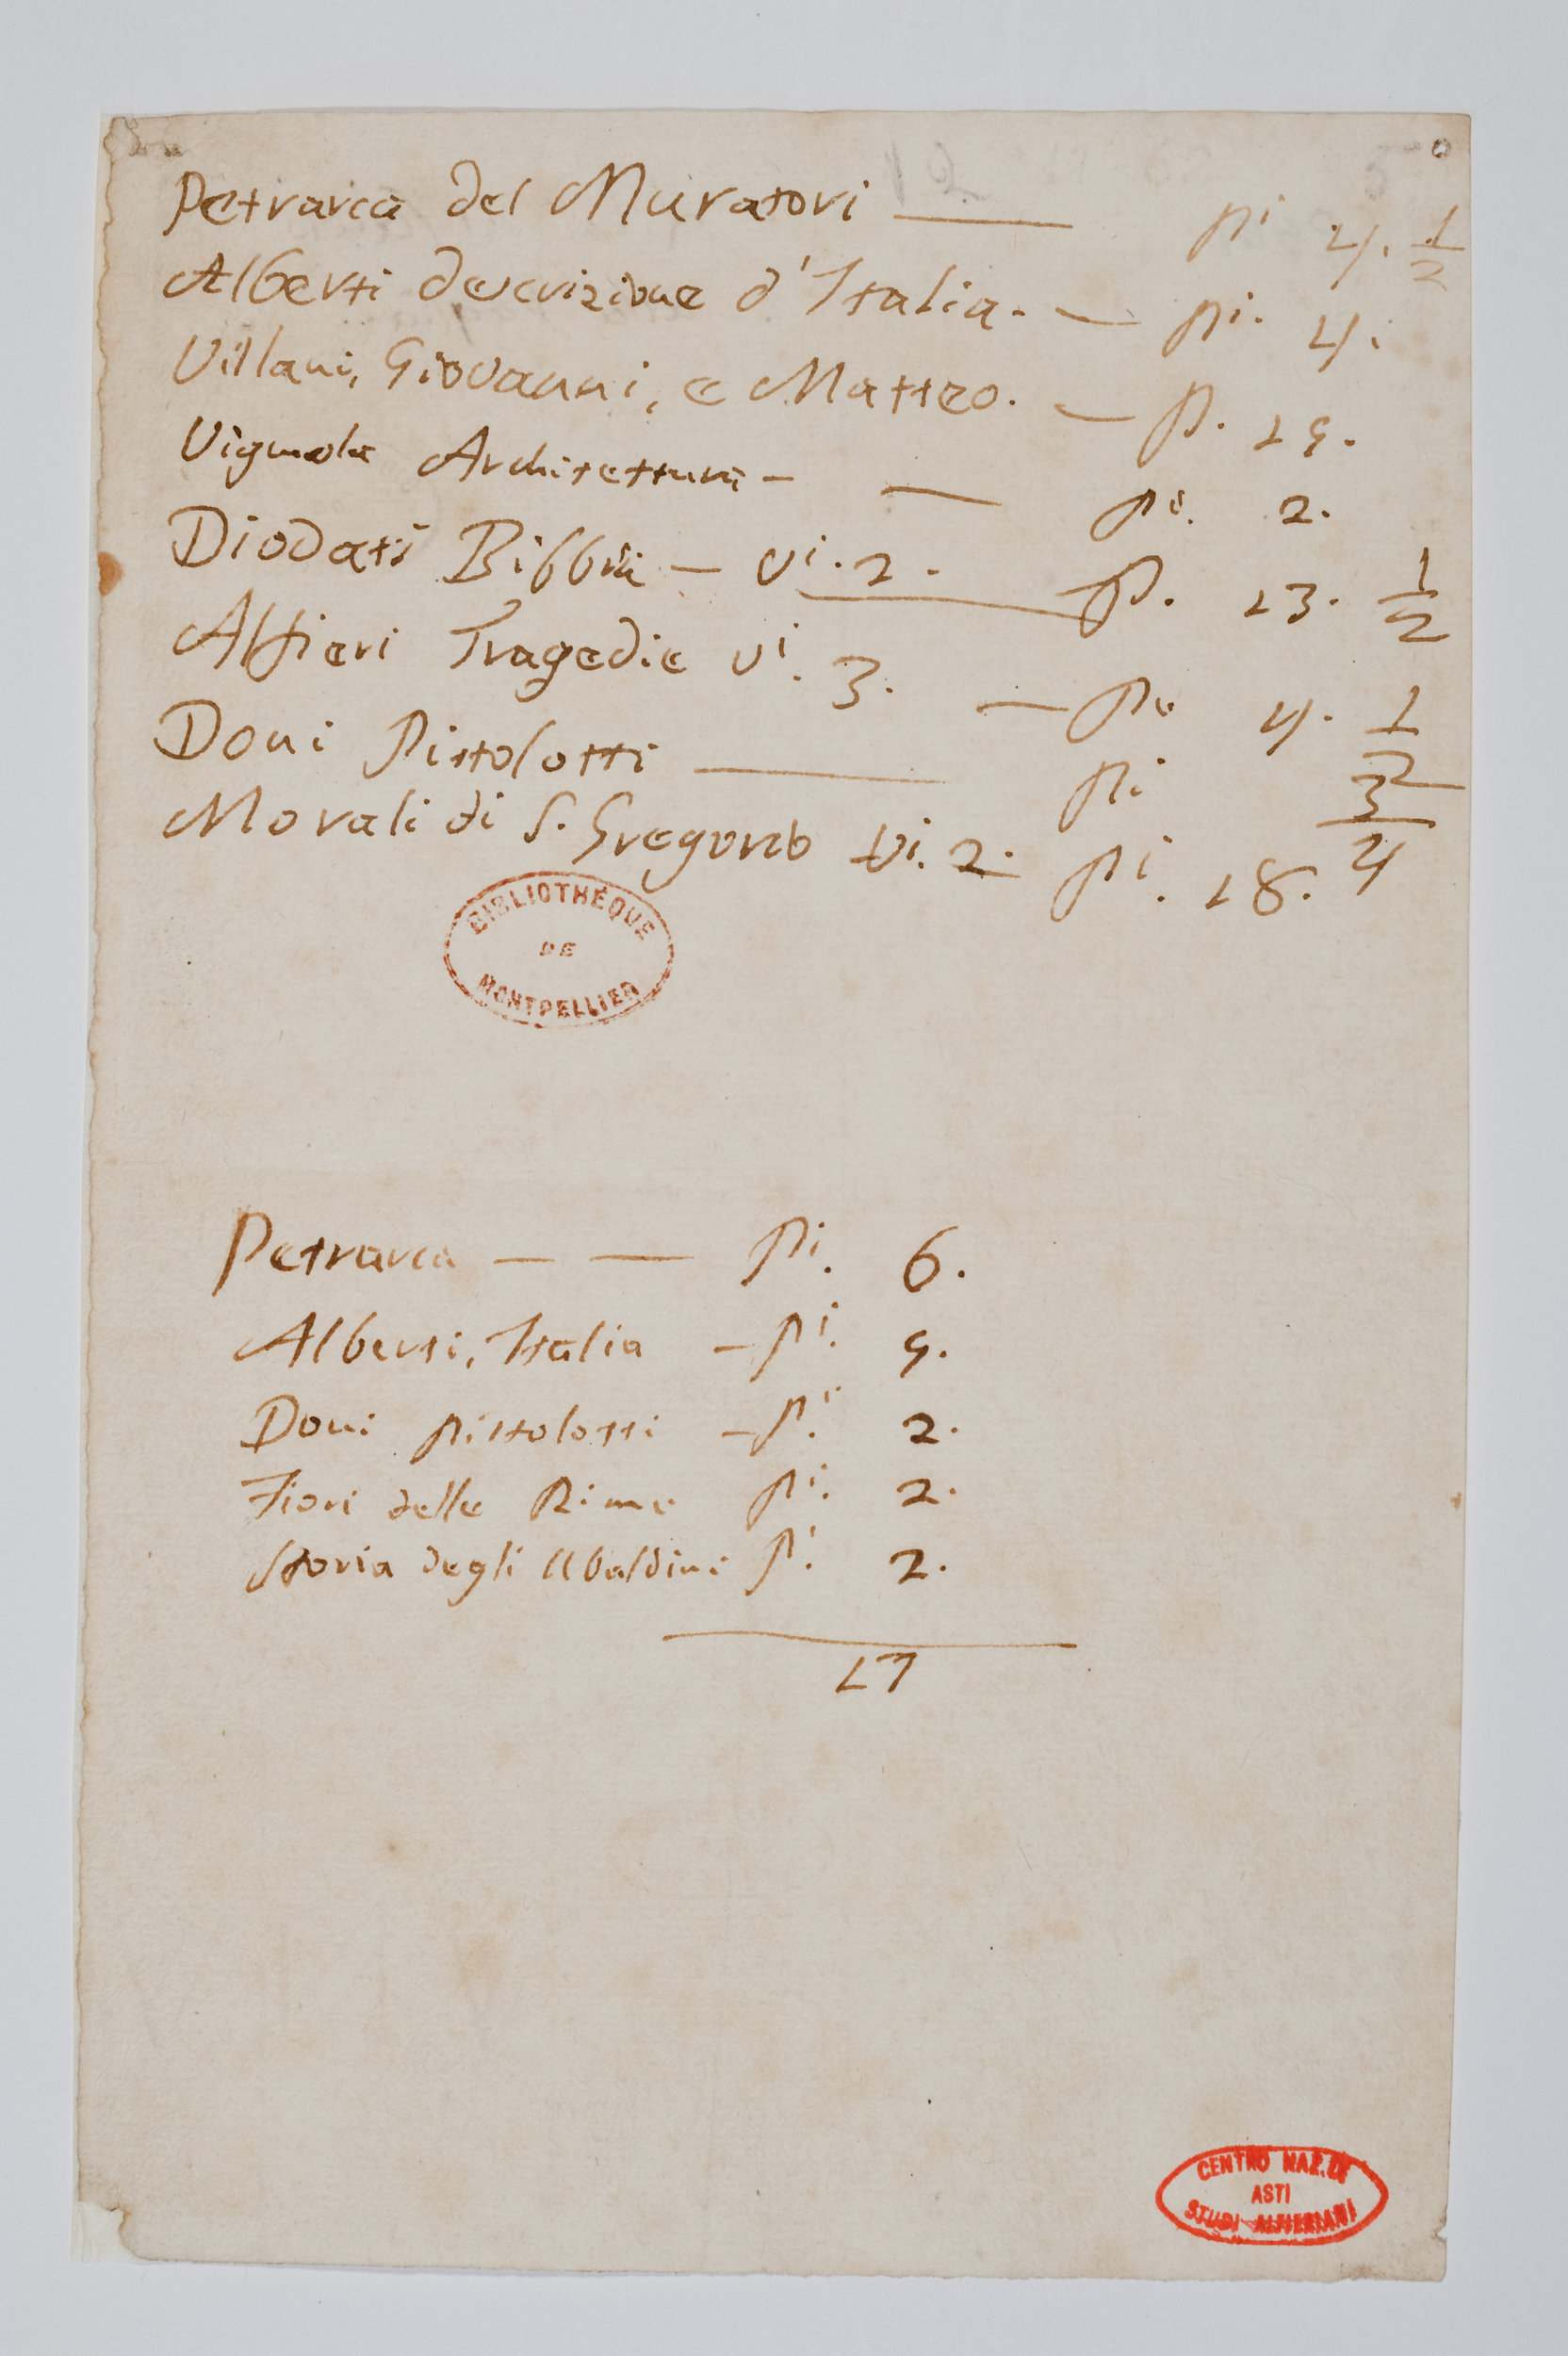 Petrarca del Muratori — pi 4. 1/2
Alberti descrizione d'Italia. — pi. 4.
Villani, Giovanni, e Matteo. — p. 15.
Vignola Architettura — — pi. 2.
Diodati Bibbia — vi. 2. — p. 13. 1/2
Alfieri Tragedie vi. 3. — pi 4. 1/2
Doni Pistolotti — pi 3/4
Morali di S. Gregorio vi. 2. pi. 18.
BIBLIOTHÈQUE
DE
MONTPELLIER
Petrarca — — pi. 6.
Alberti, Italia — pi. 5.
Doni pistolotti — pi. 2.
Fiori delle Rime pi. 2.
Storia degli Ubaldini pi. 2.
17
CENTRO NAZ.LE
ASTI
STUDI ALFIERIANI